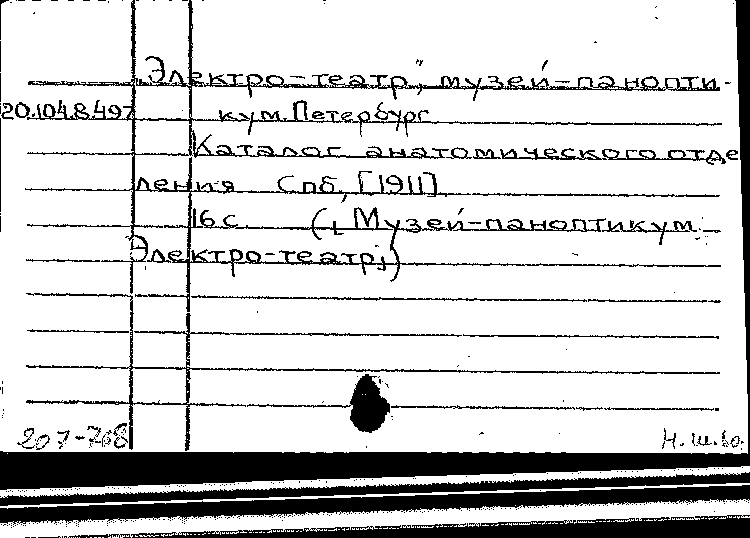 „Электро-театр", музей-панопти-
20.104.8.497 кум. Петербург
Каталог анатомического отде
ления Спб, [1911]
16 с. („Музей-паноптикум.
Электро-театр")
207-768 Н.ш.